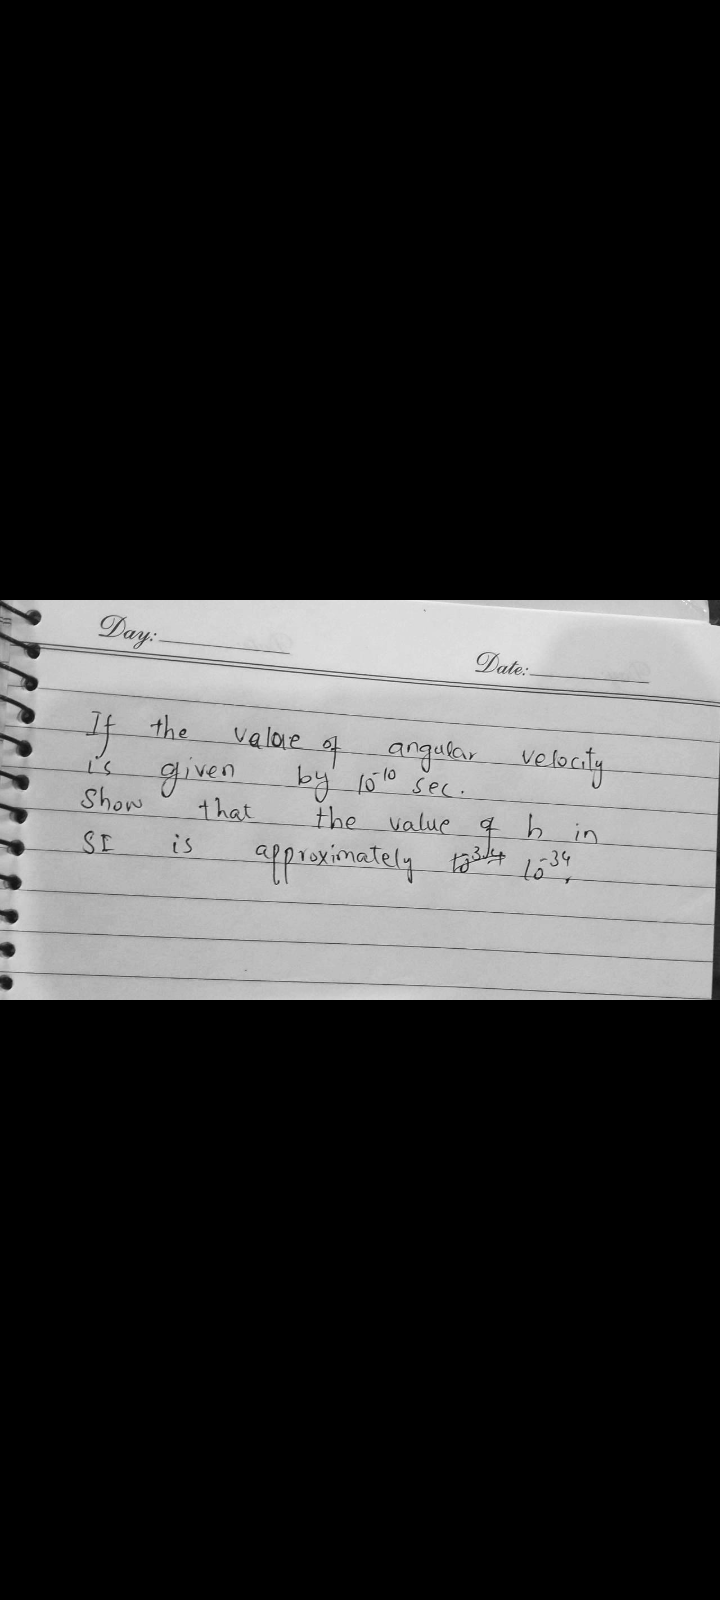 Day:
Date:
If the valoe of angular velocity
is given by 10⁻¹⁰ sec.
Show that the value of h in
SI is approximately ~~10⁻³⁴~~ 10⁻³⁴.